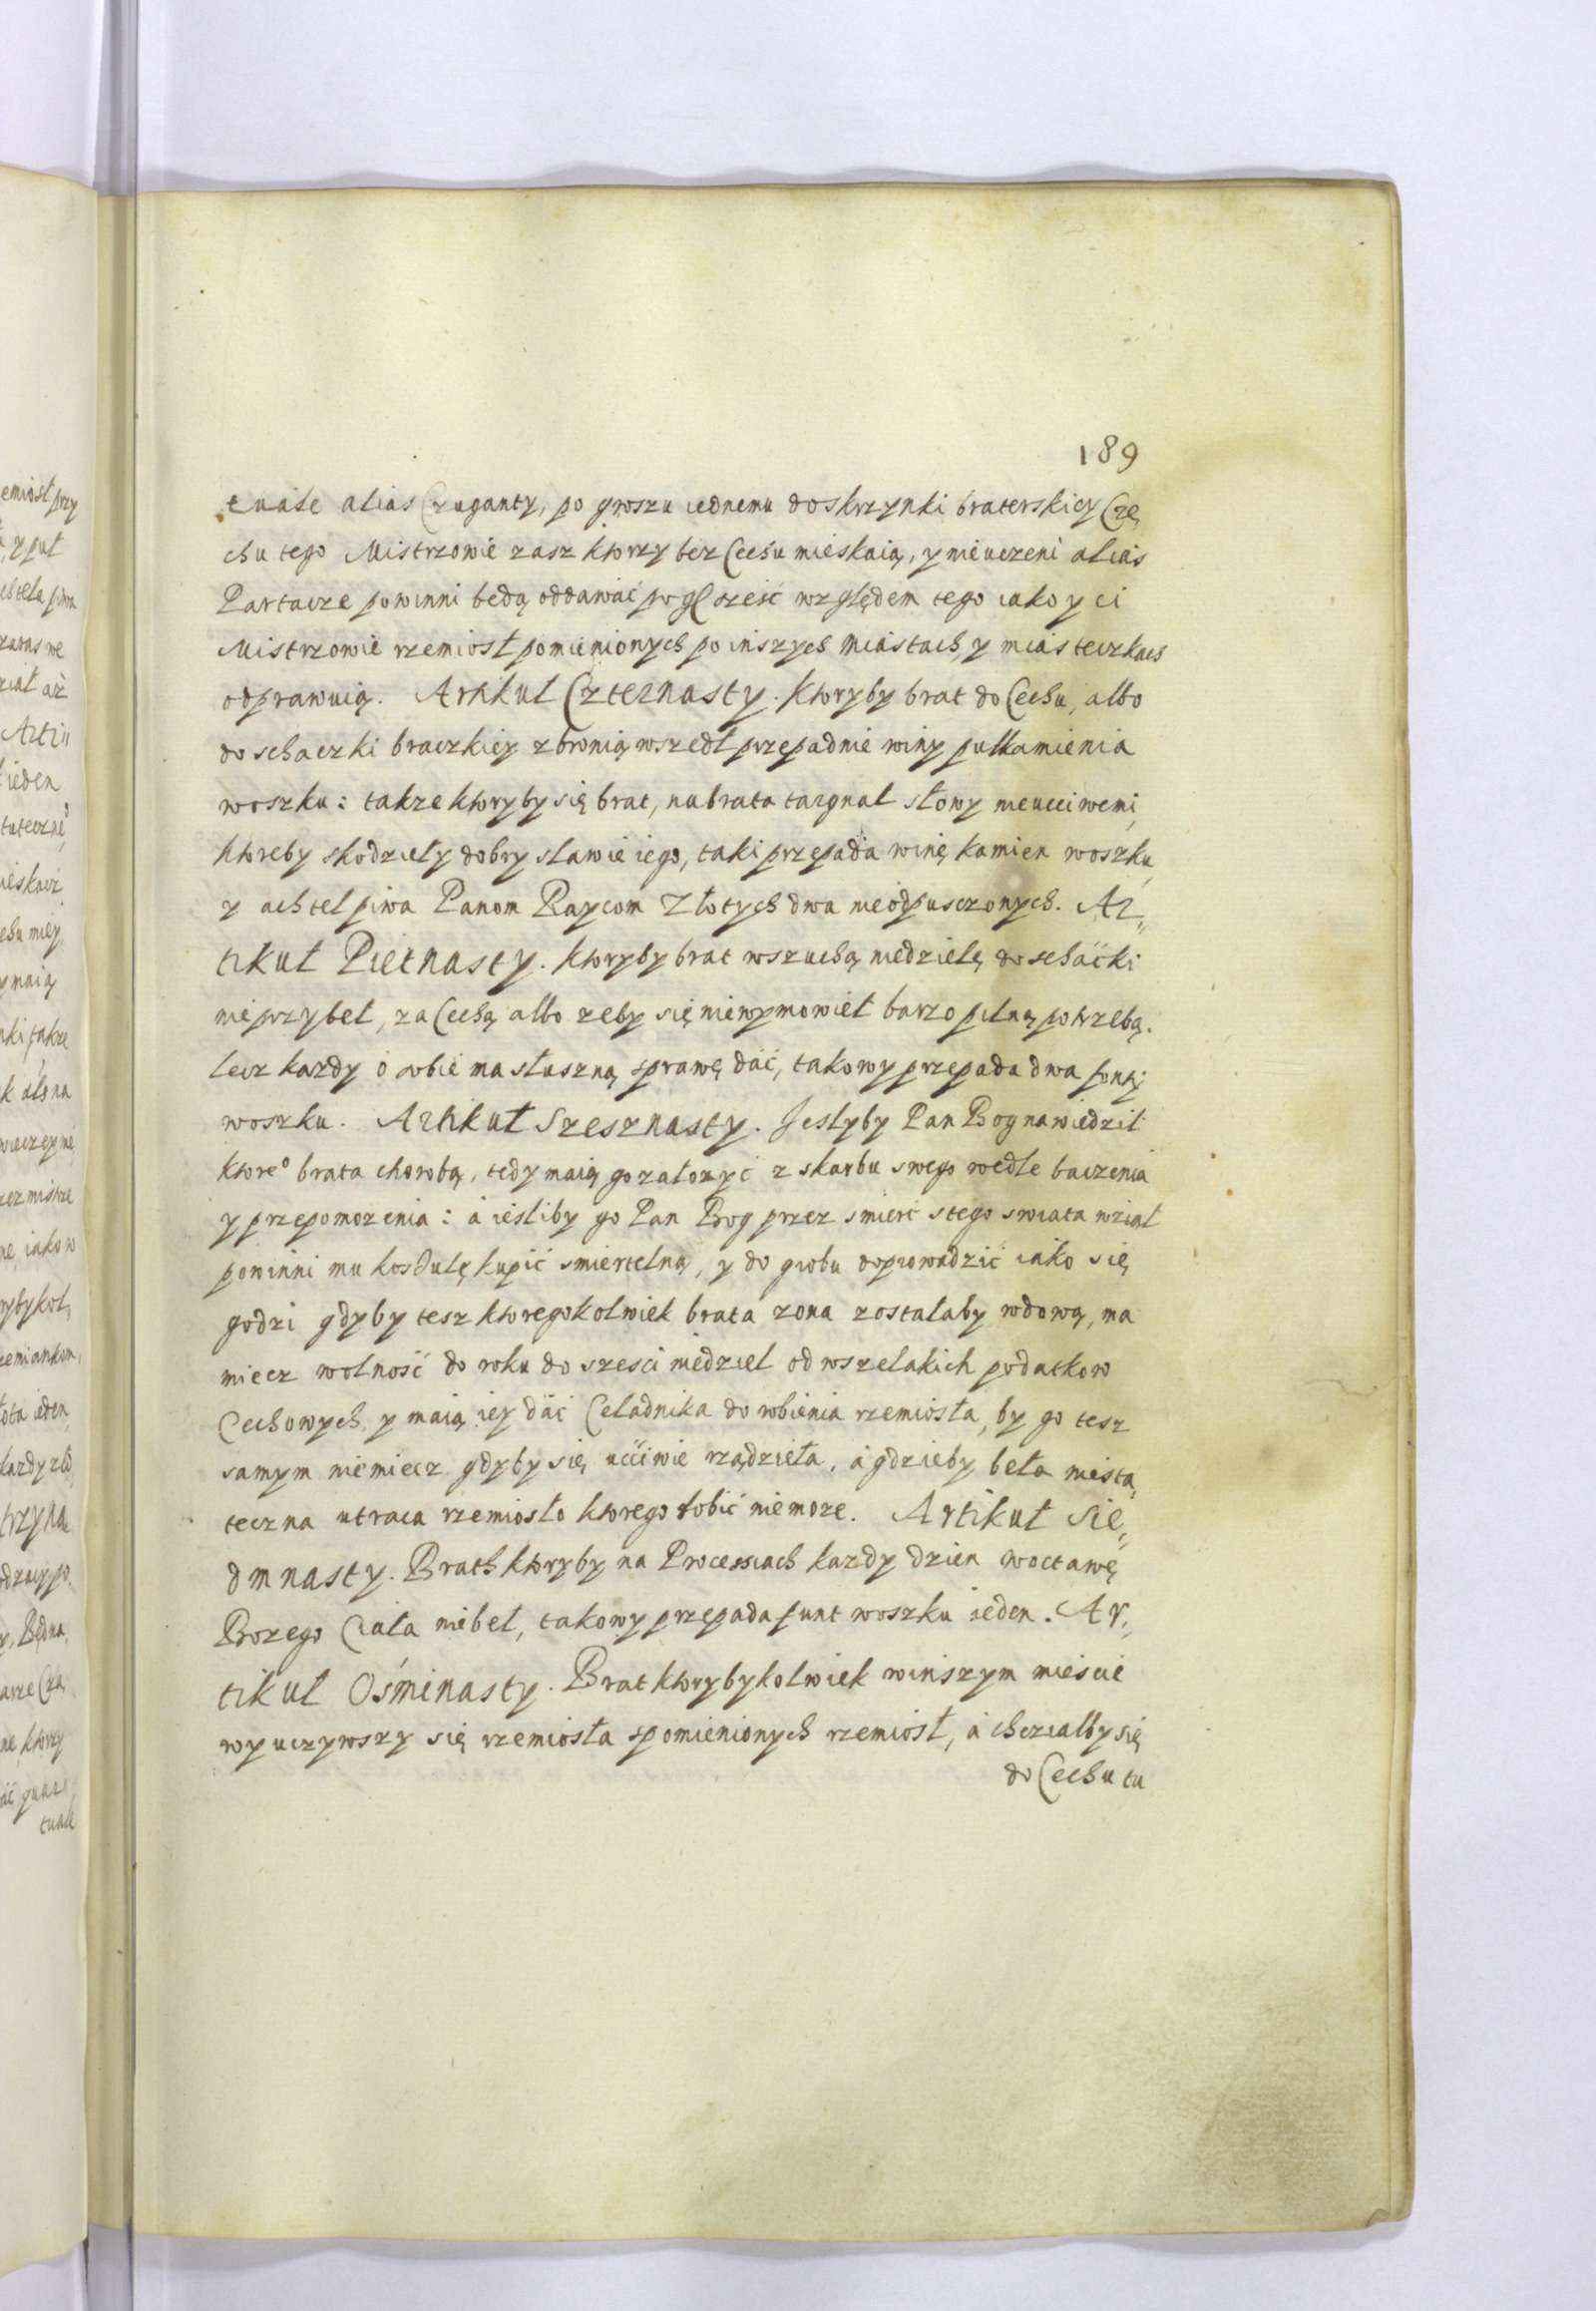 189
tuałe alias Czuganty, po groszu iednemu do skrzynki braterskiey Cze
chu tego Mistrzowie zasz ktorzy bez Cechu mieskaią, y nieuczeni alias
Partacze powinni będą oddawać po gl sześć względem tego iako y ci
Mistrzowie rzemiosł pomienionych po inszych Miastach y miasteczkach
odprawuią. Artikuł Czternasty. Ktoryby brat do Cechu, albo
do schaczki braczkiey z bronią wszedł przepadnie winy pułkamienia
woszku: takze ktoryby się brat, na brata targnał słowy nieucciwemi,
ktoreby skodzieły dobry sławie iego, taki przepada winę kamien woszku,
y achtel piwa Panom Raycom Złotych dwa nieodpusczonych. Ar„
tikuł Pietnasty. Ktoryby brat w szuchą niedzielę do schaćki
nie przybeł, za Cechą albo zeby się niewymowieł barzo pilną potrzebą.
lecz kazdy o sobie ma słuszną sprawę dać, takowy przepada dwa fonty
woszku. Artikuł Szesznasty. Jeslyby Pan Bog nawiedził
ktore° brata chorobą, tedy maią go załozyć z skarbu swego wedle baczenia
y przepomozenia: a iesliby go Pan Bog przez smierć stego swiata wziął
powinni mu kosdulę kupić smiertelną, y do grobu doprowadzić iako się
godzi gdyby tesz ktoregokolwiek brata zona zostałaby wdową, ma
miecz wolność do roku do szesci niedziel od wszelakich podatkow
Cechowych y maią iey dać Celadnika do robienia rzemiosła, by go tesz
samym niemiecz gdyby się uććiwie rządzieła, a gdzieby beła niesta„
teczna utraca rzemiosło ktorego robić niemoze. Artikuł Sie„
dmnasty. Brath ktoryby na Processiach kazdy dzien woctawę
Bozego Ciała niebeł, takowy przepada funt woszku ieden. Ar„
tikuł Ośminasty. Brat ktorybykolwiek winszym miescie
wyuczywszy się rzemiosła spomienionych rzemiosł, a chcziałby się
do Cechu tu